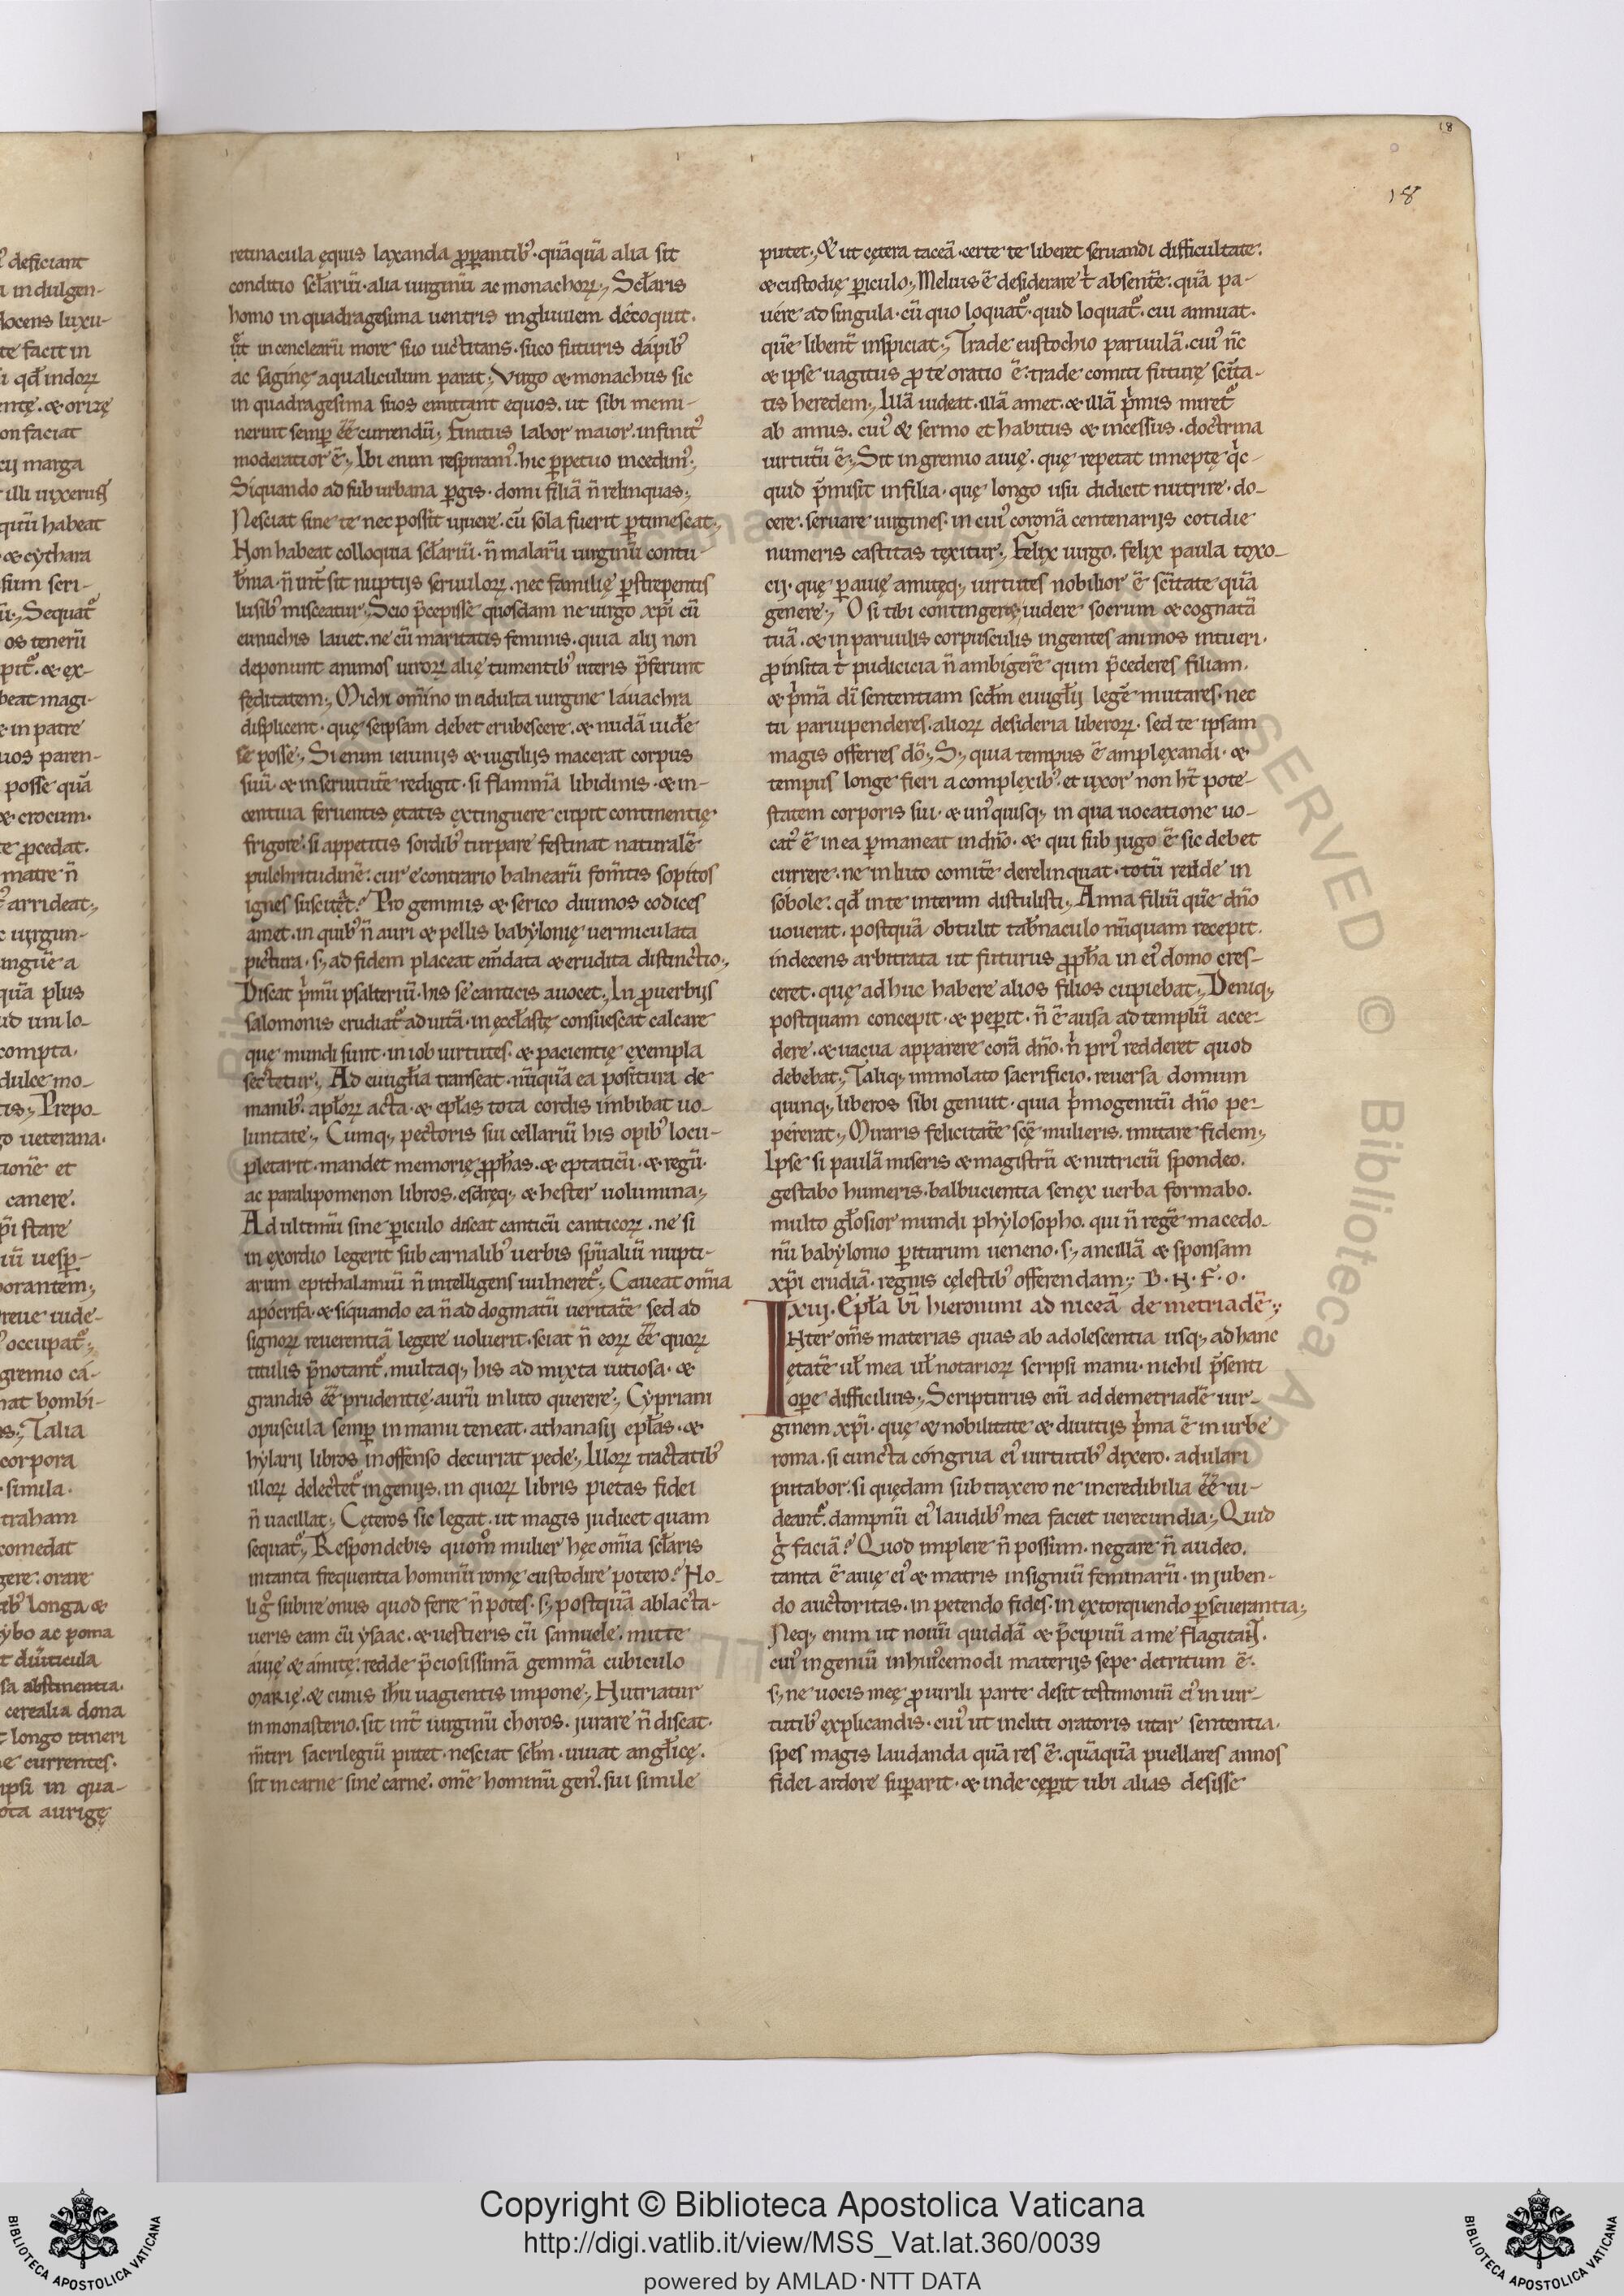 18
18
retinacula ęquis laxanda ꝓꝑantib᾿· quāquā alia sit
conditio sctariū· alia uirginū ac monachoꝝ;, Sctaris
homo in quadragesima uentris ingluuiem décoquit.
in coclearū more suo uictitans· suco futuris dápib᾿
ac sagine aqualiculum parat;, Virgo & monachus sic
in quadragesima suos emittant equos. ut sibi memi-
nerint semꝑ ēē currendū;, Finitus labor maior. infinit᾿
moderatior ē;, Ibi enim respiram᾿. hic ꝑpetuo incedim᾿;,
Siquando ad suburbana ꝑgis· domi filiā n̄ relinquas;,
Nesciat sine te nec possit uiuere· cū sola fuerit ꝑtimescat;,
Non habeat colloquia sctariū· n̄ malarū uirginū contu-
b̄nia· n̄ int̄sit nuptijs seruuloꝝ. nec familię ꝑstrepentis
lusib᾿ misceatur;, Scio p̄cepisse quosdam ne uirgo xp̄i cū
eunuchis lauet. ne cū maritatis feminis. quia alij non
deponunt animos uiroꝝ alię tumentib᾿ uteris p̄ferunt
feditatem;, Michi om̄ino in adulta uirgine láuachra
displicent· quę seipsam debet erubescere. & nudā uidere
se posse;, Si enim ieiunijs & uigilijs macerat corpus
suū· & inseruitutē redigit· si flammā libidinis· & in-
centiua feruentis ętatis extinguere cupit continentię
frigore· si appetitis sordib᾿ turpare festinat naturalē
pulchritudinē: cur econtrario balnearū fom̄tis sopitos
ignes suscitet? Pro gemmis & serico diuinos codices
amet. in quib᾿ n̄ auri & pellis babylonię uermiculata
pictura· s; ad fidem placeat em̄data & erudita distinctio;,
Discat p̍mū psalteriū· his se canticis auocet;, In ꝓuerbijs
salomonis erudiat᾿ ad uitā· in ęcctaste consuescat calcare
que mundi sunt· in iob uirtutes· & pacientię exempla
sectetur;, Ad euuglia transeat· nūquā ea positura de
manib᾿. aptoꝝ acta· & eptas tota cordis imbibat uo-
luntate;, Cumq; pectoris sui cellariū his opib᾿ locu-
pletarit· mandet memorię ꝓphas· & eptaticū· & regū·
ac paralipomenon libros. esdreq; & hester uolumina;,
Ad ultimū sine ꝑiculo discat canticū canticoꝝ· ne si
in exordio legerit sub carnalib᾿ uerbis sp̄ualiū nupti-
arum epithalamiū n̄ intelligens uulneret᾿;, Caueat omīa
apocrifa· & siquando ea n̄ ad dogmatū ueritatē sed ad
signoꝝ reuerentiā legere uoluerit· sciat n̄ eoꝝ ēē quoꝝ
titulis p̄notant᾿· multaq; his ad mixta uitiosa· &
grandis ēē prudentię· aurū in luto querere;, Cypriani
opuscula semꝑ in manu teneat· athanasij eptas· &
hylarij libros inoffenso decurrat pede;, Illoꝝ tractatib᾿
illoꝝ delectet᾿ ingenijs. in quoꝝ libris pietas fidei
n̄ uacillat;, Cęteros sic legat· ut magis judicet quam
sequat᾿;, Respondebis quom̊ mulier hęc omīa sctaris
intanta frequentia hominū romę custodire potero? No-
li g̊ subire onus quod ferre n̄ potes· s; postquā ablacta-
ueris eam cū ysaac· & uestieris cū samuele· mitte
áuię & ámitę· redde p̄ciosissimā gemmā cubiculo
marię· & cunis ihu uagientis impone;, Nutriatur
in monasterio. sit int̄ uirginū choros. jurare n̄ discat·
m̄tiri sacrilegiū putet· nesciat sclm· uiuat anglicę·
sit in carne sine carne. omē hominū gen᾿· sui simile
putet;, & ut cętera taceā· certe te liberet seruandi difficultate:
& custodię ꝑiculo;, Melius ē desiderare t̍ absentē: quā pa-
uére ad singula· cū quo loquat᾿· quid loquat᾿· cui annuat·
quē libent̄ inspiciat;, Trade eustochio paruulā· cui᾿ n̄c
& ipse uagitus ꝓ te oratio ē: trade comiti futurę scita-
tis heredem;, Illā uideat· illā amet· & illā p̍mis miret᾿
ab annis. cui᾿ & sermo et habitus & incessus· doctrina
uirtutū ē;, Sit in gremio auię· quę repetat inneptę q̍c-
quid p̄misit in filia· quę longo usu didicit nutrire· do-
cere· seruare uirgines· in cui᾿ coronā centenarijs cotidie
numeris castitas texitur;, Felix uirgo· felix paula toxo-
cij· quę ꝑ auię amitęq; uirtutes nobilior ē scitate quā
genere;, O si tibi contingeret uidere socrum & cognatā
tuā· & in paruulis corpusculis ingentes animos intueri·
ꝓ insita t̍ pudicicia n̄ ambigerē quin p̄cederes filiam·
& p̍mā dī sententiam scdm euuglij lege mutares· nec
tu paruipenderes· alioꝝ desideria liberoꝝ· sed te ipsam
magis offerres dō;, S; quia tempus ē amplexandi· &
tempus longe fieri a complexib᾿· et uxor non ht̄ pote-
statem corporis sui· & un᾿quisq; in qua uocatione uo-
cat᾿ ē in ea ꝑmaneat in dn̄o· & qui sub jugo ē sic debet
currere· ne in luto comitē derelinquat· totū redde in
sóbole· qd̄ in te interim distulisti;, Anna filiū quē dn̄o
uouerat· postquā obtulit tabnaculo nūquam recepit·
indecens arbitrata ut futurus ꝓpha in ei᾿ domo cres-
ceret· quę adhuc habere alios filios cupiebat;, Deniq;
postquam concepit· & peꝑit· n̄ ē ausa ad templū acce-
dere· & uacua apparere corā dn̄o· n̍ pri᾿ redderet quod
debebat;, Taliq; immolato sacrificio· reuersa domum
quinq; liberos sibi genuit· quia p̍mogenitū dn̄o pe-
pérerat;, Miraris felicitatē scę mulieris. imitare fidem;,
Ipse si paulā miseris & magistrū & nutriciū spondeo.
gestabo humeris· balbucientia senex uerba formabo.
multo gtosior mundi phylosopho· qui n̄ regē macedo-
nū babylonio ꝑiturum ueneno· s; ancillā & sponsam
xp̄i erudiā· regnis cęlestib᾿ offerendam;, B· N· F· O·
xiij· Epta bi hieronimi ad niceā demetriadē;,
INter oms materias quas ab adolescentia usq; ad hanc
ętatē ut mea ut notarioꝝ scripsi manu· nichil p̄senti
oꝑe difficilius;, Scripturus em̄ ad demetriadē uir-
ginem xp̄i· quę & nobilitate & diuitijs p̍ma ē in urbe
roma· si cuncta cóngrua ei᾿ uirtutib᾿ dixero· adulari
putabor· si quędam subtraxero ne incredibilia ēē ui-
deant᾿· dampnū ei᾿ laudib᾿ mea faciet uerecundia;, Quid
g̊ faciā? Quod implere n̄ possum· negare n̄ audeo.
tanta ē auię ei᾿ & matris insigniū feminarū· in juben-
do auctoritas· in petendo fides· in extorquendo ꝑseuerantia;,
Neq; enim ut nouū quiddā & p̄cipuū a me flagitant.
cui᾿ ingeniū in hui᾿cemodi materijs sepe detritum ē·
s; ne uocis meę ꝓ uirili parte desit testimoniū ei᾿ in uir-
tutib᾿ explicandis· cui᾿ ut incliti oratoris utar sententia·
spes magis laudanda quā res ē· quāquā puellares annos
fidei ardore suꝑarit· & inde cęꝑit ubi alias desisse
Copyright © Biblioteca Apostolica Vaticana
http://digi.vatlib.it/view/MSS_Vat.lat.360/0039
powered by AMLAD·NTT DATA
BIBLIOTECA APOSTOLICA VATICANA
BIBLIOTECA APOSTOLICA VATICANA